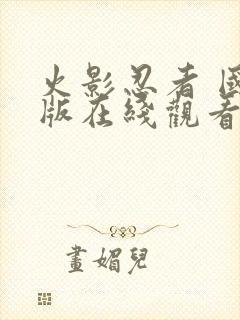 火影忍者 國
版在綫觀看
畫媚兒